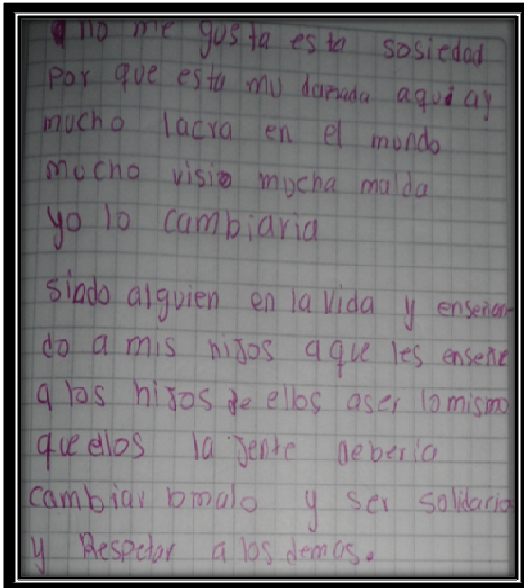 no me gusta esta sosiedad
por que esta mu dañada aqui ay
mucho lacra en el mundo
mucho visio mucha malda
yo lo cambiaria
siedo alguien en la vida y enseñan
do a mis hijos a que les enseñe
a los hijos de ellos aser lo mismo
que ellos la jente deberia
cambiar lo malo y ser solidario
y Respetar a los demas.